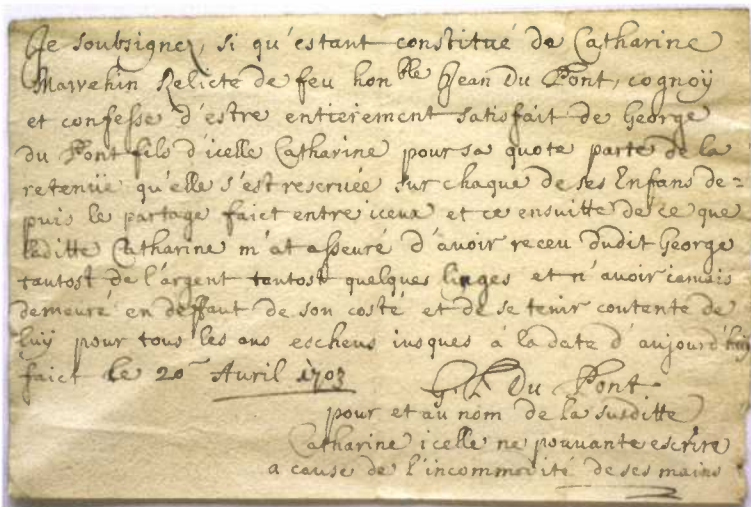 Je soubsignez, si qu'estant constitué de Catharine
Marvehin Relicte de feu honble Jean Du Pont, cognoÿ
et confesse d'estre entierement satisfait de George
du Pont fils d'icelle Catharine pour sa quote parte de la
retenüe qu'elle s'est reservée sur chaque de ses Enfans de=
puis le partage faict entre iceux et ce ensuitte de ce que
laditte Catharine m'at asseuré d'avoir receu dudit George
tantost de l'argent tantost quelques linges et n'avoir iamais
demeuré en deffaut de son costé et de se tenir contente de
luÿ pour tous les ans escheus iusques à la date d'aujourd'huÿ
faict le 20 Avril 1703
Du Pont
pour et au nom de la susditte
Catharine icelle ne pouvante escrire
a cause de l'incommodité de ses mains